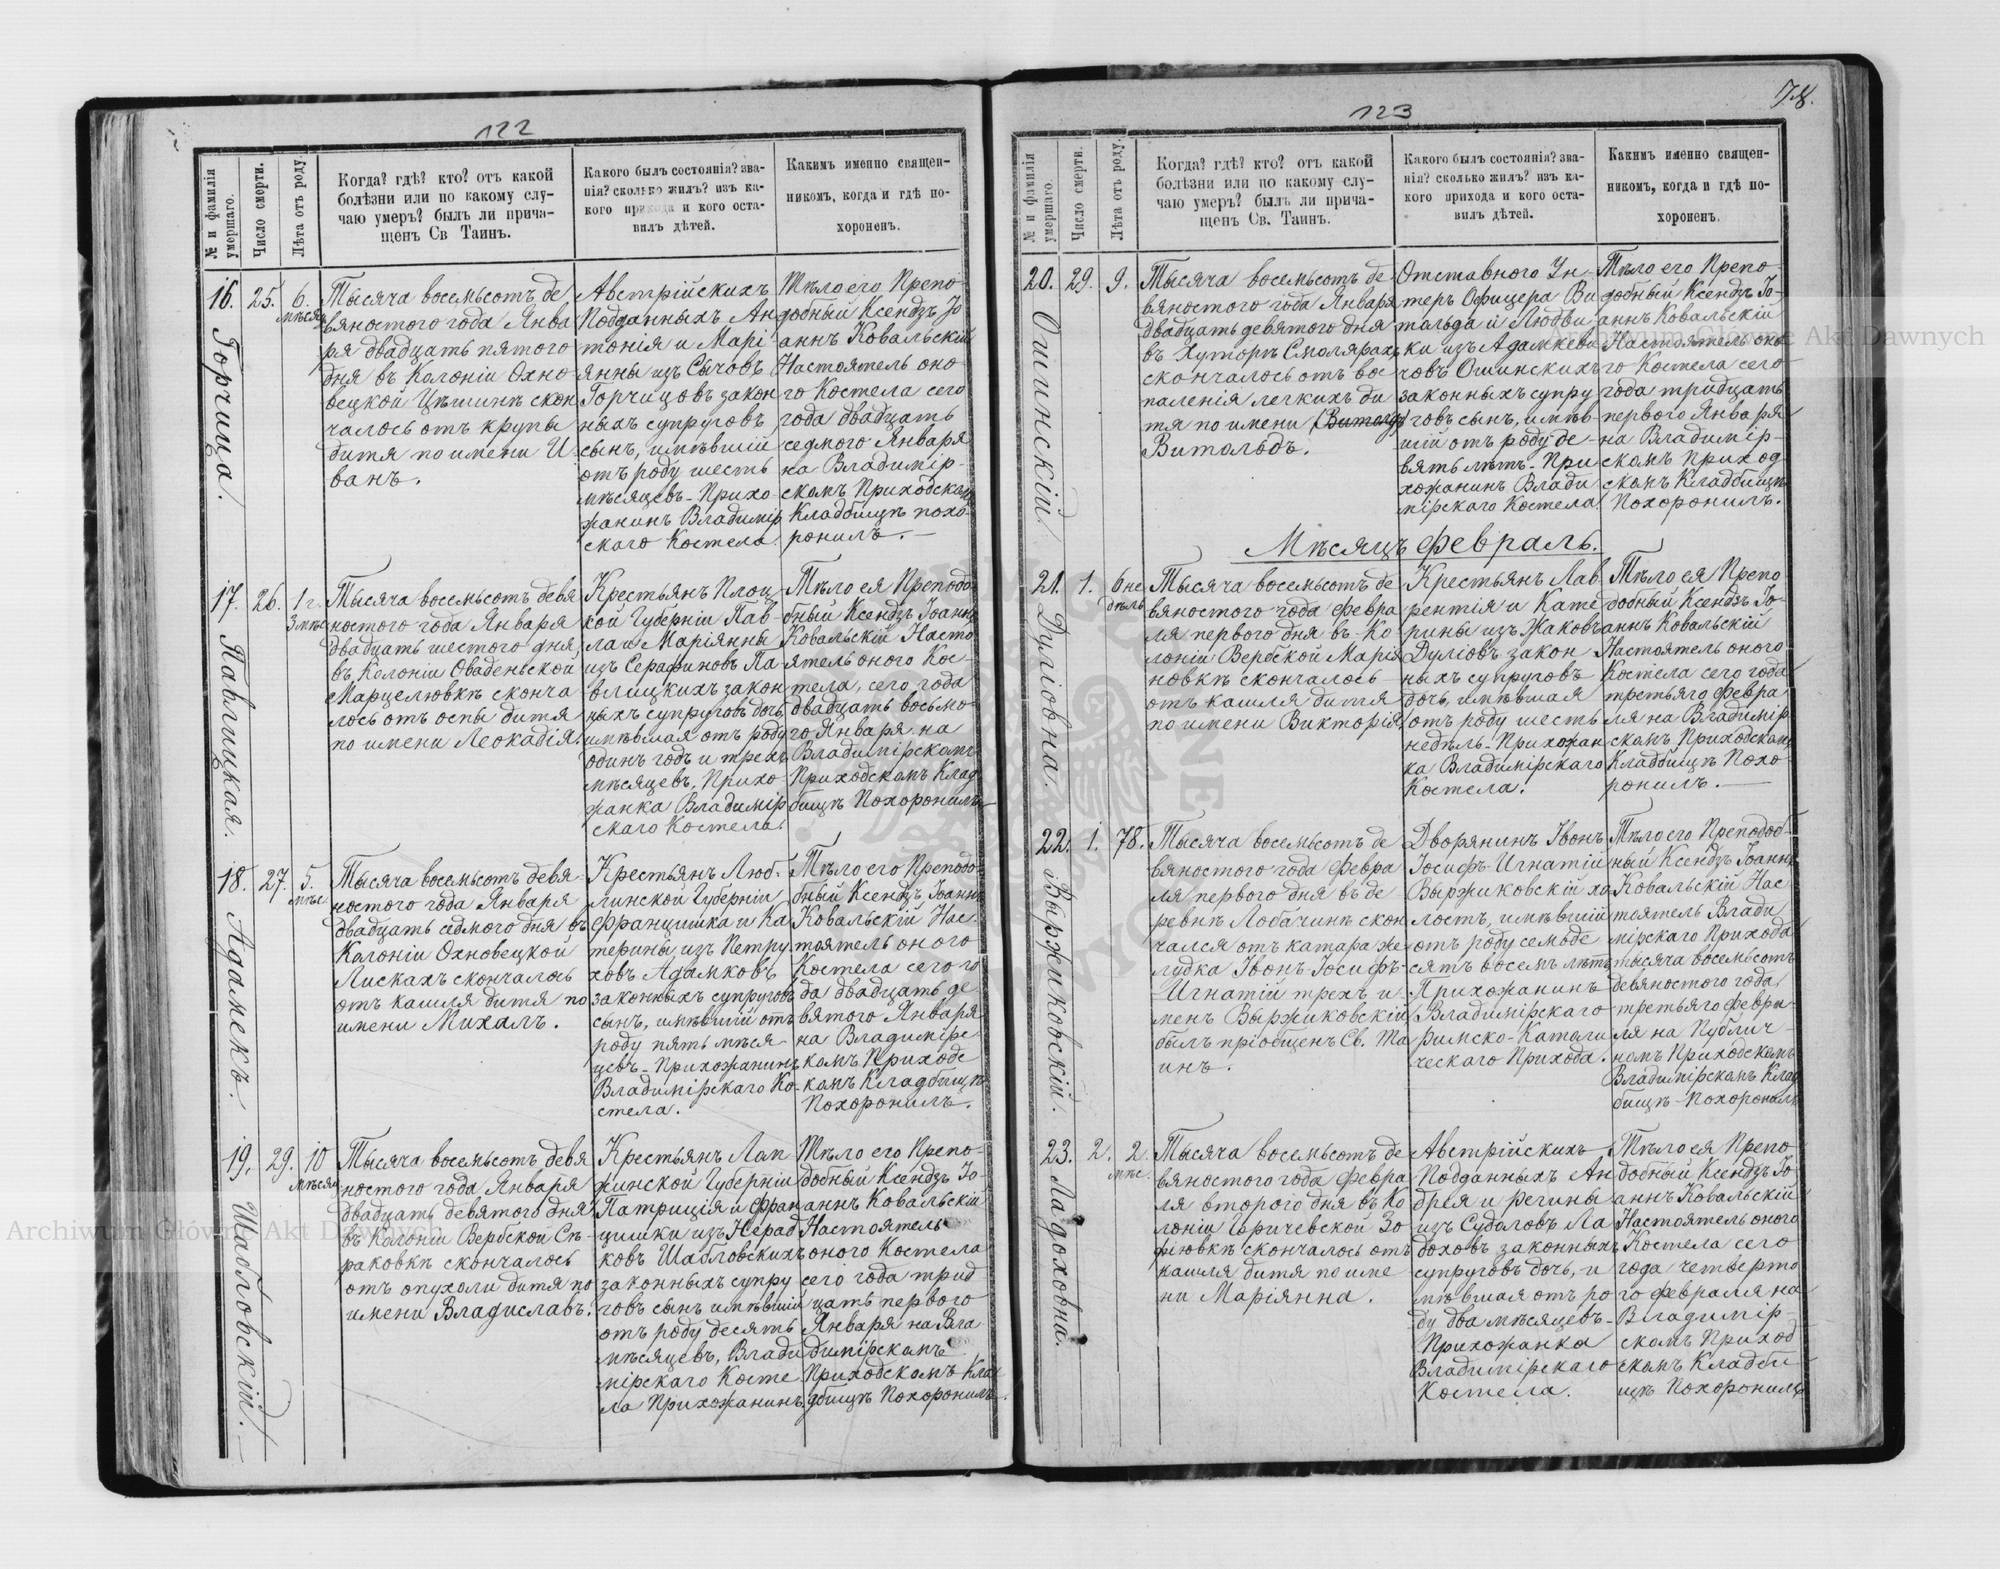 122
№ и фамилія умершаго.
Число смерти.
Лѣта отъ роду.
Когда? гдѣ? кто? отъ какой
болѣзни или по какому слу-
чаю умеръ? былъ ли прича-
щенъ Св Таинъ.
Какого былъ состоянія? зва-
нія? сколько жилъ? изъ ка-
кого прихода и кого оста-
вилъ дѣтей.
Какимъ именно священ-
никомъ, когда и гдѣ по-
хороненъ.
16. Горчица.
25.
6. мѣсяц
Тысяча восемьсотъ де
вяностого года Янва
ря двадцать пятого
дня въ Колоніи Охно
вецкой Цѣшинѣ скон
чалось отъ крупы
дитя по имени И
ванъ.
Австрійскихъ
Подданныхъ Ан
тонія и Марі-
янны изъ Сычовъ
Горчицовъ закон
ныхъ супруговъ
сынъ, имѣвшій
отъ роду шесть
мѣсяцевъ - Прихо
жанинъ Владимір
скаго Костела.
Тѣло его Препо
добный Ксендзъ Іо
аннъ Ковальскій
Настоятель оно
го Костела сего
года двадцать
седмого Января
на Владимір-
скомъ Приходском
Кладбищѣ похо-
ронилъ.
17. Павлицкая.
26.
1 г. 3 мѣс
Тысяча восемьсотъ девя
ностого года Января
двадцать шестого дня,
въ Колоніи Оваденьской
Марцелювкѣ сконча
лось отъ оспы дитя
по имени Леокадія.
Крестьянъ Плоц
кой Губерніи Пав-
ла и Маріянны
изъ Серафиновъ Па
влицкихъ закон
ныхъ супруговъ дочь,
имѣвшая отъ роду
одинъ годъ и трехъ
мѣсяцевъ, Прихо
жанка Владимір
скаго Костела.
Тѣло ея Преподо
бный Ксендзъ Іоаннъ
Ковальскій Насто
ятель оного Кос-
тела, сего года
двадцать восьмо
го Января на
Владимірскомъ
Приходскомъ Клад
бищѣ Похоронилъ
18. Адамекъ.
27.
5. мѣс.
Тысяча восемьсотъ девя-
ностого года Января
двадцать седмого дня въ
Колоніи Охновецкой
Лискахъ скончалось
отъ кашля дитя по
имени Михалъ.
Крестьянъ Люб-
линской Губерніи
Францишка и Ка
терины изъ Петру
ховъ Адамковъ
законныхъ супруговъ
сынъ, имѣвшій отъ
роду пять мѣся-
цевъ - Прихожанинъ
Владимірскаго Ко-
стела.
Тѣло его Преподо
бный Ксендзъ Іоаннъ
Ковальскій Нас-
тоятель оного
Костела сего го
да двадцать де
вятого Января
на Владимірс-
комъ Приходс
комъ Кладбищѣ
Похоронилъ.
19. Шабловскій.
29.
10 мѣсяц
Тысяча восемьсотъ девя
ностого года Января
двадцать девятого дня
въ Колоніи Вербской Сѣ-
раковкѣ скончалось
отъ опухоли дитя по
имени Владиславъ.
Крестьянъ Лап
жинской Губерніи
Патриція и Фран
цишки изъ Нерад
ковъ Шабловскихъ
законныхъ супру
говъ сынъ имѣвшій
отъ роду десять
мѣсяцевъ, Влади
мірскаго Косте
ла Прихожанинъ.
Тѣло его Препо-
добный Ксендзъ Іо-
аннъ Ковальскій
Настоятель
оного Костела
сего года трид
цать первого
Января на Вла
димірскомъ
Приходскомъ Кла
дбищѣ Похоронилъ.
123
78.
№ и фамилія умершаго.
Число смерти.
Лѣта отъ роду.
Когда? гдѣ? кто? отъ какой
болѣзни или по какому слу-
чаю умеръ? былъ ли прича-
щенъ Св. Таинъ.
Какого былъ состоянія? зва-
нія? сколько жилъ? изъ ка-
кого прихода и кого оста-
вилъ дѣтей.
Какимъ именно священ-
никомъ, когда и гдѣ по-
хороненъ.
20. Ошинскій
29.
9.
Тысяча восемьсотъ де
вяностого года Января
двадцать девятого дня
въ Хуторѣ Смолярахъ
скончалось отъ вос-
паленія легкихъ ди
тя по имени (Витолдъ)
Витольдъ.
Отставного Ун-
теръ Офицера Ви
тольда и Людви
ки изъ Адамкеви
човъ Ошинскихъ
законныхъ супру
говъ сынъ, имѣв-
шій отъ роду де-
вять лѣтъ - При
хожанинъ Влади
мірскаго Костела.
Тѣло его Препо-
добный Ксендзъ Іо-
аннъ Ковальскій
Настоятель оно
го Костела сего
года тридцать
первого Января
на Владимір-
скомъ Приход
скомъ Кладбищѣ
Похоронилъ.
Мѣсяцъ Февраль.
21. Дуліовна.
1.
6 не дѣль
Тысяча восемьсотъ де-
вяностого года Февра
ля первого дня въ Ко
лоніи Вербской Марія
новкѣ скончалось
отъ кашля дитя
по имени Викторія.
Крестьянъ Лав
рентія и Кате
рины изъ Жаковъ
Дуліовъ закон
ныхъ супруговъ
дочь, имѣвшая
отъ роду шесть
недѣль - Прихожан
ка Владимірскаго
Костела.
Тѣло ея Препо
добный Ксендзъ Іо-
аннъ Ковальскій
Настоятель оного
Костела сего года
третьяго Февра
ля на Владимір
скомъ Приходском
Кладбищѣ Похо
ронилъ.
22. Выржиковскій.
1.
78.
Тысяча восемьсотъ де
вяностого года Февра
ля первого дня въ де
ревнѣ Лобачинѣ скон
чался отъ катара же
лудка Івонъ-Іосифъ-
Игнатій трехъ и-
менъ Выржиковскій
былъ пріобщенъ Св. Та
инъ.
Дворянинъ Івонъ
Іосифъ-Игнатій
Выржиковскій хо
лостъ, имѣвшій
отъ роду семьде
сятъ восемь лѣтъ
Прихожанинъ
Владимірскаго
Римско-Католи
ческаго Прихода.
Тѣло его Преподоб-
ный Ксендзъ Іоаннъ
Ковальскій Нас-
тоятель Влади
мірскаго Прихода
тысяча восемьсотъ
девяностого года,
третьяго Февра-
ля на Публич-
номъ Приходскомъ
Владимірскомъ Клад
бищѣ - Похоронилъ
23. Ладоховна.
2.
2. мѣс.
Тысяча восемьсотъ де
вяностого года Февра
ля второго дня въ Ко
лоніи Гоričевской Зо
фіювкѣ скончалось отъ
кашля дитя по име
ни Маріянна.
Австрійскихъ
Подданныхъ Ан
дрея и Регины
изъ Судоловъ Ла
доховъ законныхъ
супруговъ дочь, и
мѣвшая отъ ро
ду два мѣсяцевъ -
Прихожанка
Владимірскаго
Костела.
Тѣло ея Препо
добный Ксендзъ Іо-
аннъ Ковальскій
Настоятель оного
Костела сего
года четверто
го Февраля на
Владимір-
скомъ Приход
скомъ Кладби
щѣ Похоронилъ
Archiwum Główne Akt Dawnych
Archiwum Główne Akt Dawnych